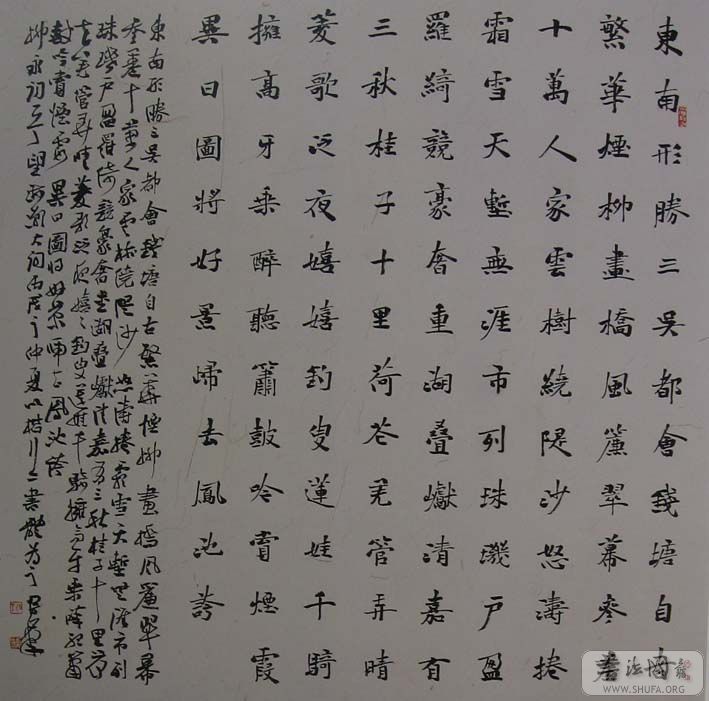 東南形勝三吳都會錢塘自
繁華煙柳畫橋風簾翠幕參差
十萬人家雲樹繞隄沙怒濤捲
霜雪天塹無涯市列珠璣戶盈
羅綺競豪奢重湖疊巘清嘉有
三秋桂子十里荷花羌管弄晴
菱歌泛夜嬉嬉釣叟蓮娃千騎
擁高牙乘醉聽簫鼓吟賞煙霞
異日圖將好景歸去鳳池誇
東南形勝三吳都會錢塘自古繁華煙柳畫橋風簾翠幕
參差十萬人家雲樹繞隄沙怒濤捲霜雪天塹無涯市列
珠璣戶盈羅綺競豪奢重湖疊巘清嘉有三秋桂子十里荷
花羌管弄晴菱歌泛夜嬉嬉釣叟蓮娃千騎擁高牙乘醉聽簫
鼓吟賞煙霞異日圖將好景歸去鳳池誇
柳永詞望海潮仲夏以楷行二書體為之
WWW.SHUFA.ORG